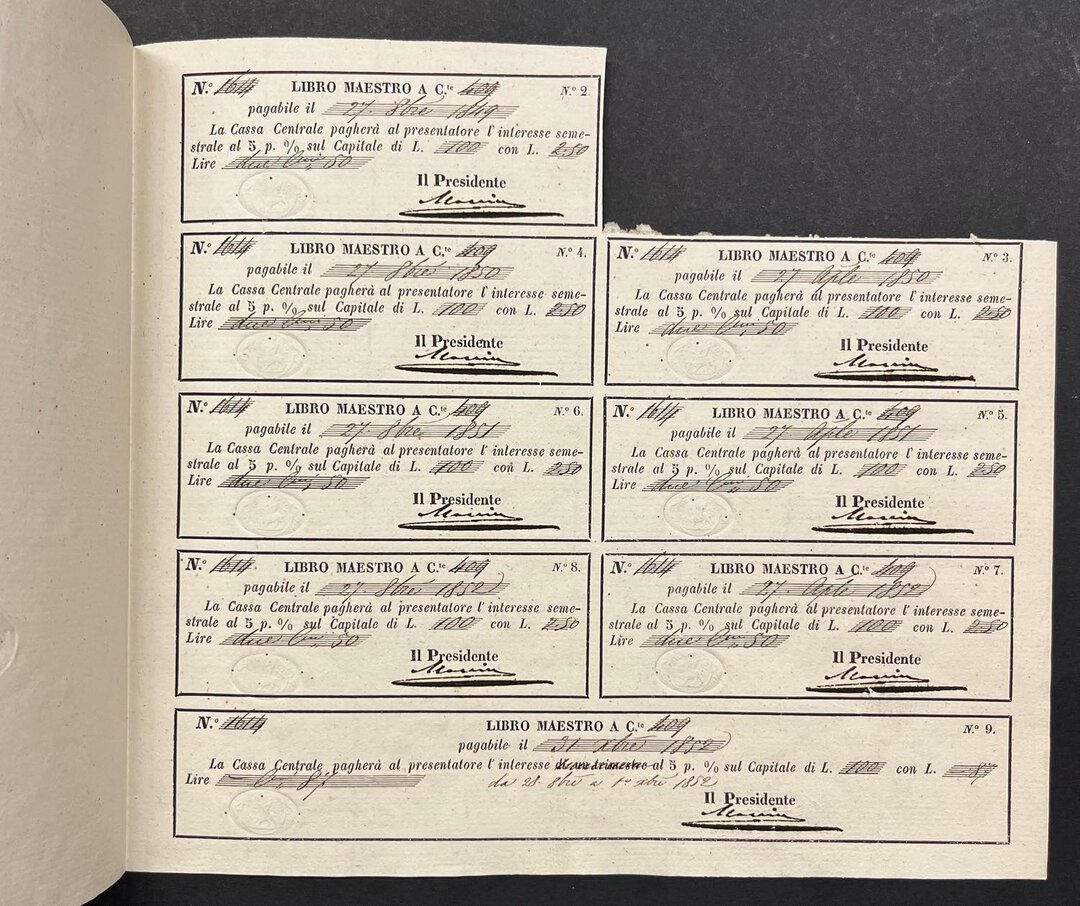 N.º 1614 LIBRO MAESTRO A C.te 409 N.º 2.
pagabile il 27 8bre 1849
La Cassa Centrale pagherà al presentatore l'interesse seme-
strale al 5 p. % sul Capitale di L. 100 con L. 2.50
Lire due Cmi 50
Il Presidente
N.º 1614 LIBRO MAESTRO A C.te 409 N.º 4.
pagabile il 27 8bre 1850
La Cassa Centrale pagherà al presentatore l'interesse seme-
strale al 5 p. % sul Capitale di L. 100 con L. 2.50
Lire due Cmi 50
Il Presidente
N.º 1614 LIBRO MAESTRO A C.te 409 N.º 3.
pagabile il 27 Aple 1850
La Cassa Centrale pagherà al presentatore l'interesse seme-
strale al 5 p. % sul Capitale di L. 100 con L. 2.50
Lire due Cmi 50
Il Presidente
N.º 1614 LIBRO MAESTRO A C.te 409 N.º 6.
pagabile il 27 8bre 1851
La Cassa Centrale pagherà al presentatore l'interesse seme-
strale al 5 p. % sul Capitale di L. 100 con L. 2.50
Lire due Cmi 50
Il Presidente
N.º 1614 LIBRO MAESTRO A C.te 409 N.º 5.
pagabile il 27 Aple 1851
La Cassa Centrale pagherà al presentatore l'interesse seme-
strale al 5 p. % sul Capitale di L. 100 con L. 2.50
Lire due Cmi 50
Il Presidente
N.º 1614 LIBRO MAESTRO A C.te 409 N.º 8.
pagabile il 27 8bre 1852
La Cassa Centrale pagherà al presentatore l'interesse seme-
strale al 5 p. % sul Capitale di L. 100 con L. 2.50
Lire due Cmi 50
Il Presidente
N.º 1614 LIBRO MAESTRO A C.te 409 N.º 7.
pagabile il 27 Aple 1852
La Cassa Centrale pagherà al presentatore l'interesse seme-
strale al 5 p. % sul Capitale di L. 100 con L. 2.50
Lire due Cmi 50
Il Presidente
N.º 1614 LIBRO MAESTRO A C.te 409 N.º 9.
pagabile il 31 xbre 1852
La Cassa Centrale pagherà al presentatore l'interesse al 5 p. % sul Capitale di L. 100 con L. 87
Lire C. 87 da 28 8bre a xbre 1852
Il Presidente